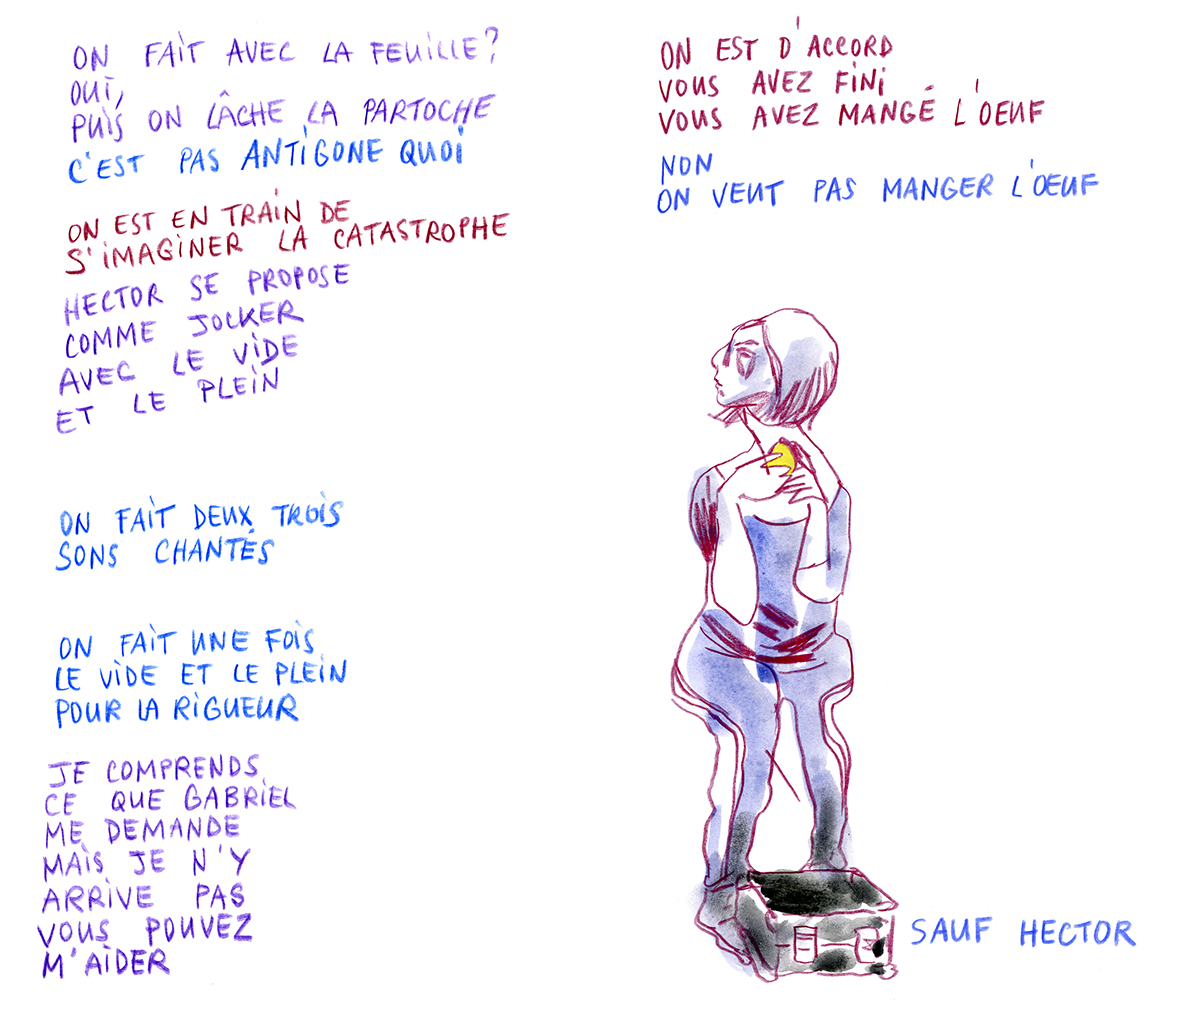 ON FAIT AVEC LA FEUILLE?
OUI,
PUIS ON LÂCHE LA PARTOCHE
C'EST PAS ANTIGONE QUOI
ON EST EN TRAIN DE
S'IMAGINER LA CATASTROPHE
HECTOR SE PROPOSE
COMME JOCKER
AVEC LE VIDE
ET LE PLEIN
ON FAIT DEUX TROIS
SONS CHANTÉS
ON FAIT UNE FOIS
LE VIDE ET LE PLEIN
POUR LA RIGUEUR
JE COMPRENDS
CE QUE GABRIEL
ME DEMANDE
MAIS JE N'Y
ARRIVE PAS
VOUS POUVEZ
M'AIDER
ON EST D'ACCORD
VOUS AVEZ FINI
VOUS AVEZ MANGÉ L'OEUF
NON
ON VEUT PAS MANGER L'OEUF
SAUF HECTOR